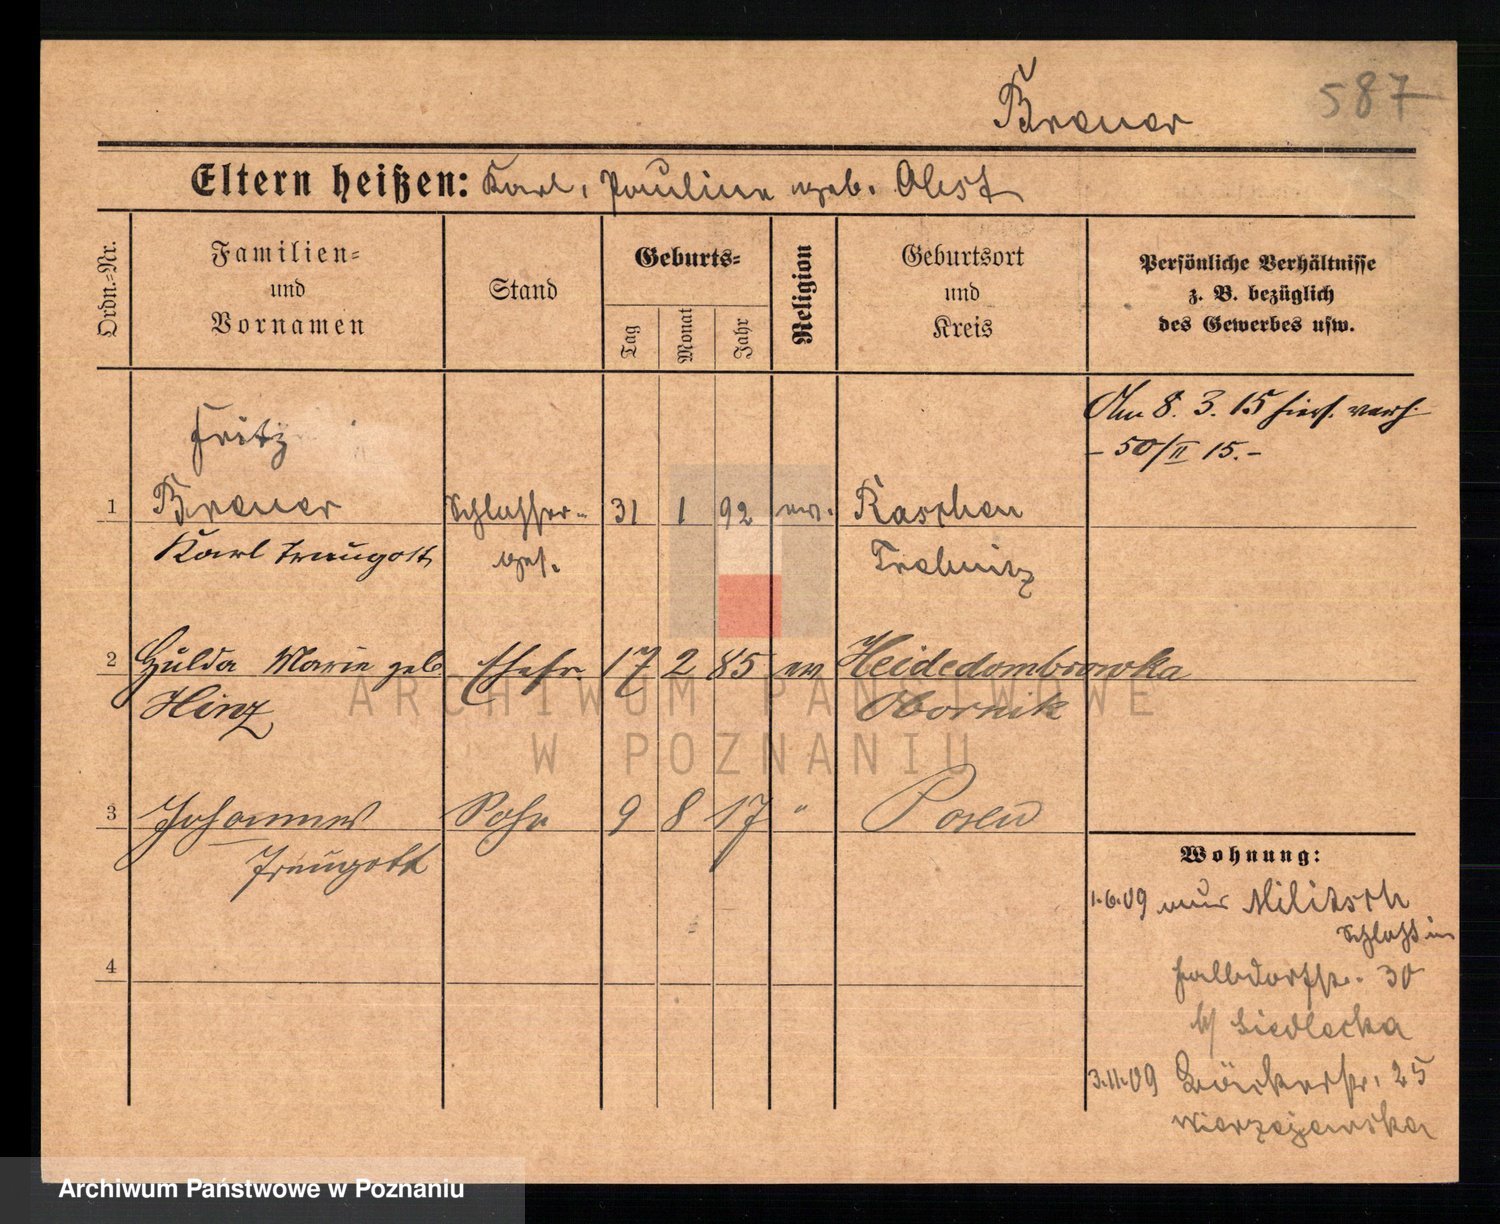 Breuer
587
Eltern heißen: Karl, Pauline geb. Obst
Ordn.-Nr.
Familien-
und
Vornamen
Stand
Geburts-
Tag
Monat
Jahr
Religion
Geburtsort
und
Kreis
Persönliche Verhältnisse
z. B. bezüglich
des Gewerbes usw.
Am 8. 3. 15 hiers. verh.
- 50/II 15. -
Fritz
1 Breuer Schlosser- 31 1 92 ev. Raschen
Karl Traugott ges. Trebnitz
2 Hulda Marie geb Ehefr. 17 2 85 ev Heidedombrowka
Hinz Obornik
3 Johannes Sohn 9 8 17 " Posen
Traugott
4
Wohnung:
1.6.09 aus Militsch
Schloss in
Halbdorfstr. 30
b/ Siedlecka
3.11.09 Bäckerstr. 25
Wierzejewska
ARCHIWUM PAŃSTWOWE
W POZNANIU
Archiwum Państwowe w Poznaniu